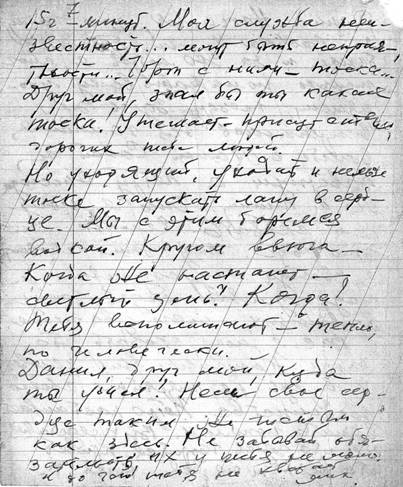 15 г 7 минут. Моя служба неиз-
вестность... могут быть неприя-
тности... Чорт с ними — тоска...
Друг мой, знал бы ты какая
тоска. Утешает — присутствие
дорогих тебе людей.
Но уходящий, уходят и нельзя
тоске запускать лапу в серд-
це. Мы с этим боремся
водкой. Кругом вьюга —
Когда же настанет —
светлый день? Когда!
Тебя вспоминают — тепло,
по человечески.
Данил, друг мой, куда
ты ушел! Неси свое сер-
дце таким же чистым
как здесь. Не забывай обя-
зательств, их у тебя не мало,
а то